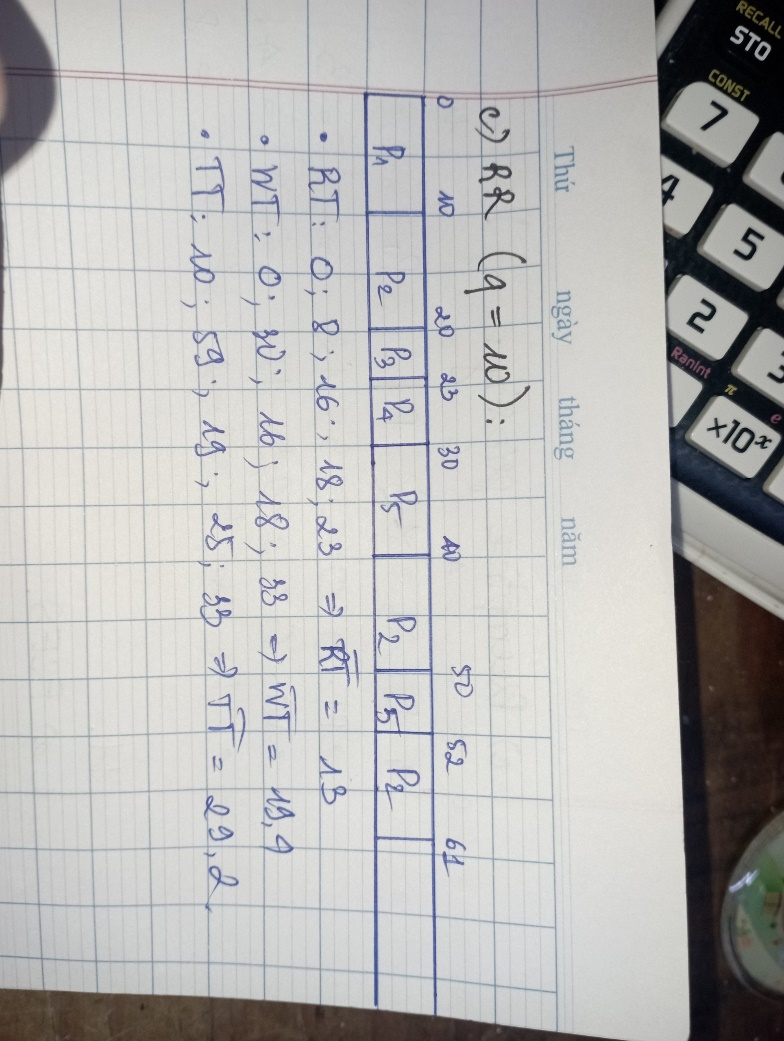 Thứ ngày tháng năm
c) RR (q = 10):
0 10 20 23 30 40 50 52 61
P1 P2 P3 P4 P5 P2 P5 P2
• RT: 0; 8; 16; 18; 23 => RT = 13
• WT: 0; 30; 16; 18; 33 => WT = 19,4
• TT: 10; 59; 19; 25; 33 => TT = 29,2
RECALL
STO
CONST
7
4
5
2
3
RanInt
π
e
×10ˣ